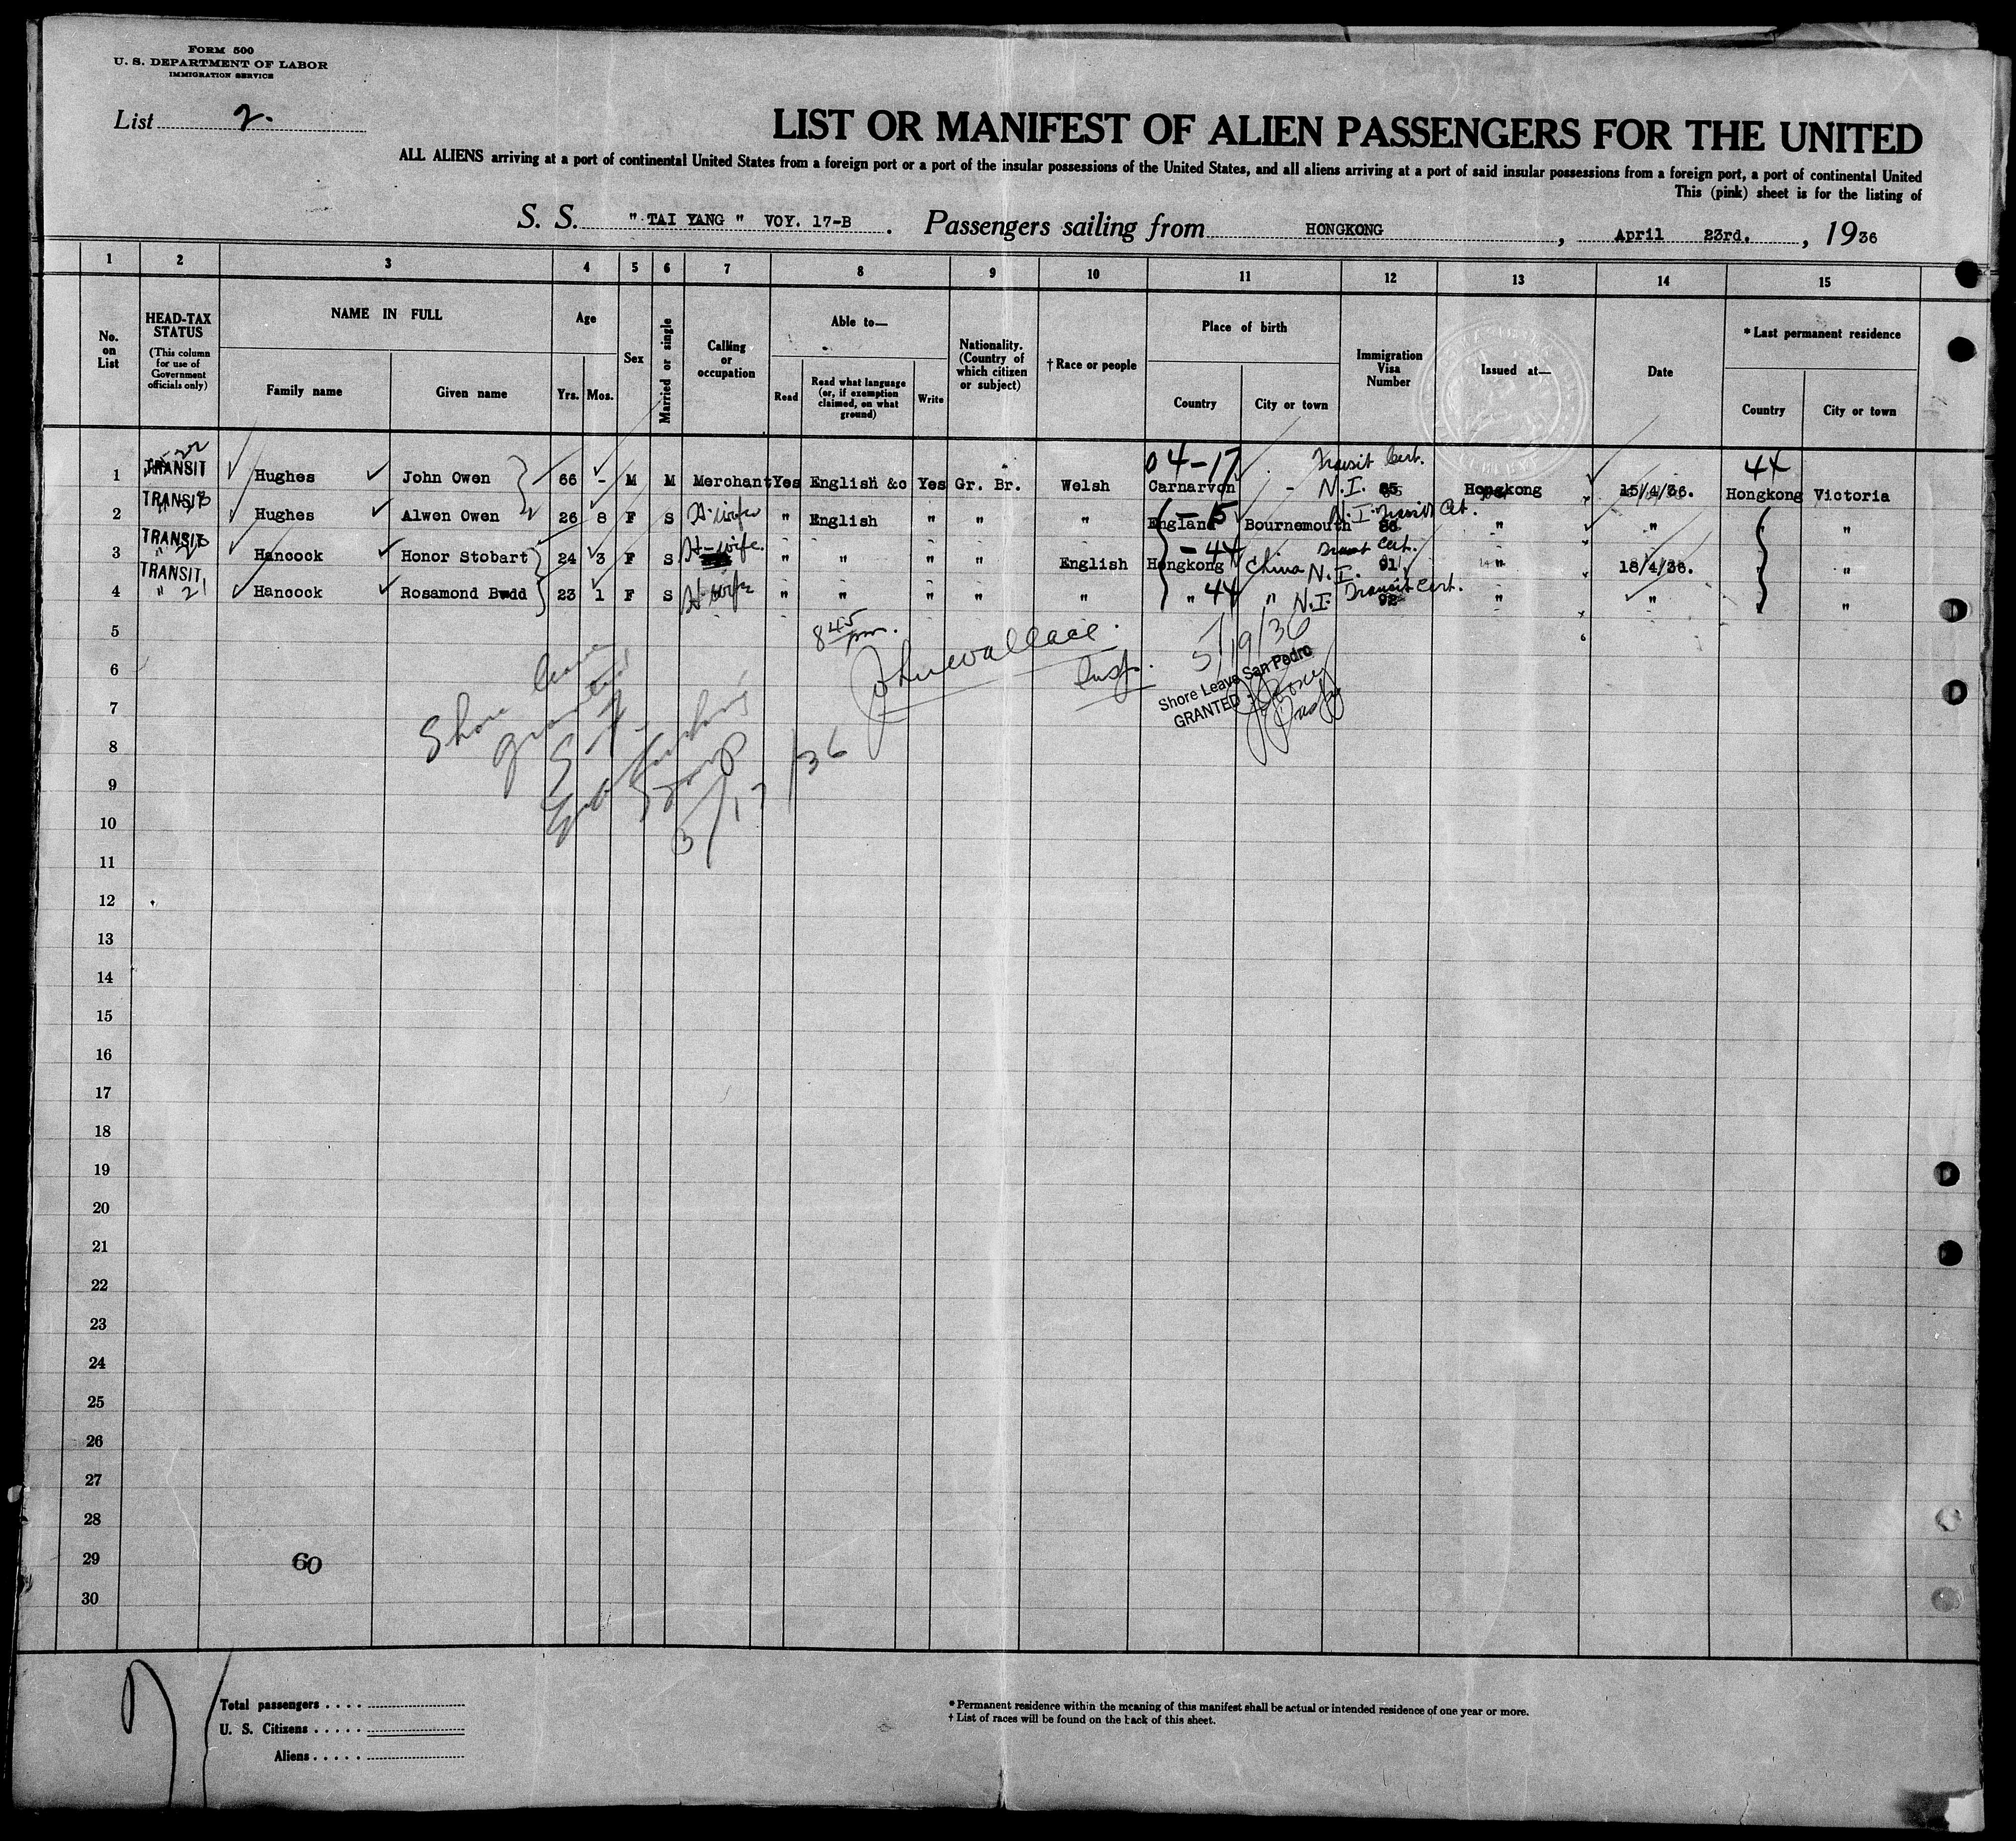 FORM 500
U. S. DEPARTMENT OF LABOR
IMMIGRATION SERVICE
List 2.
LIST OR MANIFEST OF ALIEN PASSENGERS FOR THE UNITED
ALL ALIENS arriving at a port of continental United States from a foreign port or a port of the insular possessions of the United States, and all aliens arriving at a port of said insular possessions from a foreign port, a port of continental United
This (pink) sheet is for the listing of
S. S. " TAI YANG " VOY. 17-B . Passengers sailing from HONGKONG , April 23rd. , 1936
1 2 3 4 5 6 7 8 9 10 11 12 13 14 15
No. on List
HEAD-TAX STATUS (This column for use of Government officials only)
NAME IN FULL
Family name
Given name
Age
Yrs. Mos.
Sex
Married or single
Calling or occupation
Able to—
Read
Read what language (or, if exemption claimed, on what ground)
Write
Nationality. (Country of which citizen or subject)
† Race or people
Place of birth
Country
City or town
Immigration Visa Number
Issued at—
Date
* Last permanent residence
Country
City or town
04-17 Transit Cert. 44
1 TRANSIT Hughes John Owen 66 - M M Merchant Yes English &c Yes Gr. Br. Welsh Carnarvon - N.I. 85 Hongkong 15/4/36. Hongkong Victoria
2 TRANSIT Hughes Alwen Owen 26 8 F S H-wife " English " " " England -15 Bournemouth N.I. Transit Cert. 86 " " " "
3 TRANSIT Hancock Honor Stobart 24 3 F S H-wife. " " " " English Hongkong -44 China N.I. Transit Cert. 91 " 18/4/36. " "
4 TRANSIT " 21 Hancock Rosamond Budd 23 1 F S H-wife " " " " " " 44 " N.I. Transit Cert. 92 " " " "
5
8 45 pm.
John Wallace.
Insp.
5/19/36
Shore Leave San Pedro
GRANTED
6
7
8
9
10
11
12
13
14
15
16
17
18
19
20
21
22
23
24
25
26
27
28
29 60
30
Shore leave
granted
S.F.
5/17/36
Total passengers . . . .
U. S. Citizens . . . . .
Aliens . . . . .
* Permanent residence within the meaning of this manifest shall be actual or intended residence of one year or more.
† List of races will be found on the back of this sheet.